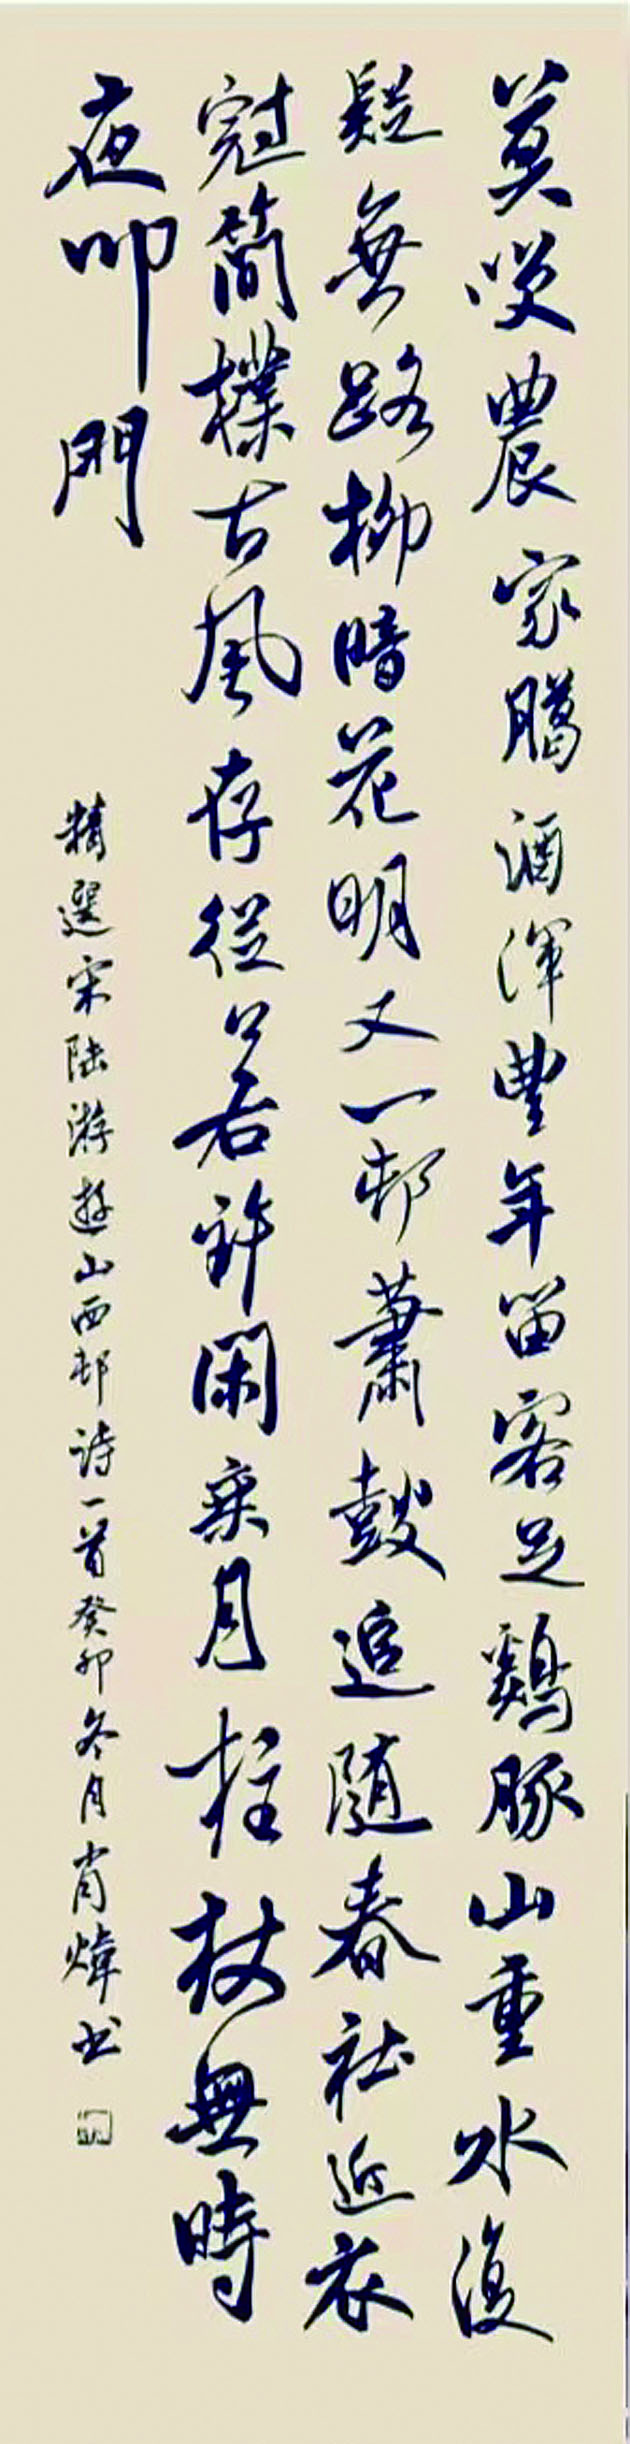 莫笑農家臈酒渾豐年留客足鷄豚山重水復
疑無路柳暗花明又一邨蕭鼓追隨春社近衣
冠簡樸古風存從若許閑乘月拄杖無時
夜叩門
精選宋陸游遊山西邨詩一首癸卯冬月肖煒书